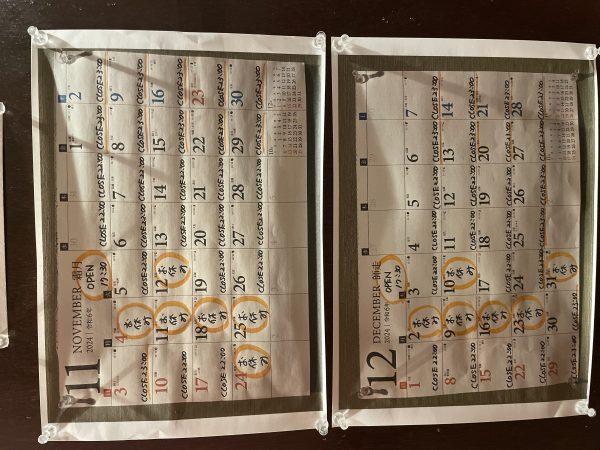 11 NOVEMBER 霜月
2024 | 令和6年
OPEN 17:30
1 CLOSE 23:00
2 CLOSE 23:00
3 CLOSE 22:00
4 お休み
5 CLOSE 22:00
6 CLOSE 22:00
7 CLOSE 22:00
8 CLOSE 23:00
9 CLOSE 23:00
10 CLOSE 22:00
11 お休み
12 お休み
13 CLOSE 22:00
14 CLOSE 22:00
15 CLOSE 23:00
16 CLOSE 23:00
17 CLOSE 22:00
18 お休み
19 CLOSE 22:00
20 CLOSE 22:00
21 CLOSE 22:00
22 CLOSE 23:00
23 CLOSE 23:00
24 お休み
25 お休み
26 CLOSE 22:00
27 CLOSE 22:00
28 CLOSE 22:00
29 CLOSE 23:00
30 CLOSE 23:00
12 DECEMBER 師走
2024 | 令和6年
OPEN 17:30
1 CLOSE 22:00
2 お休み
3 CLOSE 22:00
4 CLOSE 22:00
5 CLOSE 22:00
6 CLOSE 23:00
7 CLOSE 23:00
8 CLOSE 22:00
9 お休み
10 お休み
11 CLOSE 22:00
12 CLOSE 22:00
13 CLOSE 23:00
14 CLOSE 23:00
15 CLOSE 22:00
16 お休み
17 CLOSE 22:00
18 CLOSE 22:00
19 CLOSE 22:00
20 CLOSE 23:00
21 CLOSE 23:00
22 CLOSE 22:00
23 お休み
24 CLOSE 22:00
25 CLOSE 22:00
26 CLOSE 22:00
27 CLOSE 23:00
28 CLOSE 23:00
29 CLOSE 22:00
30 CLOSE 22:00
31 お休み